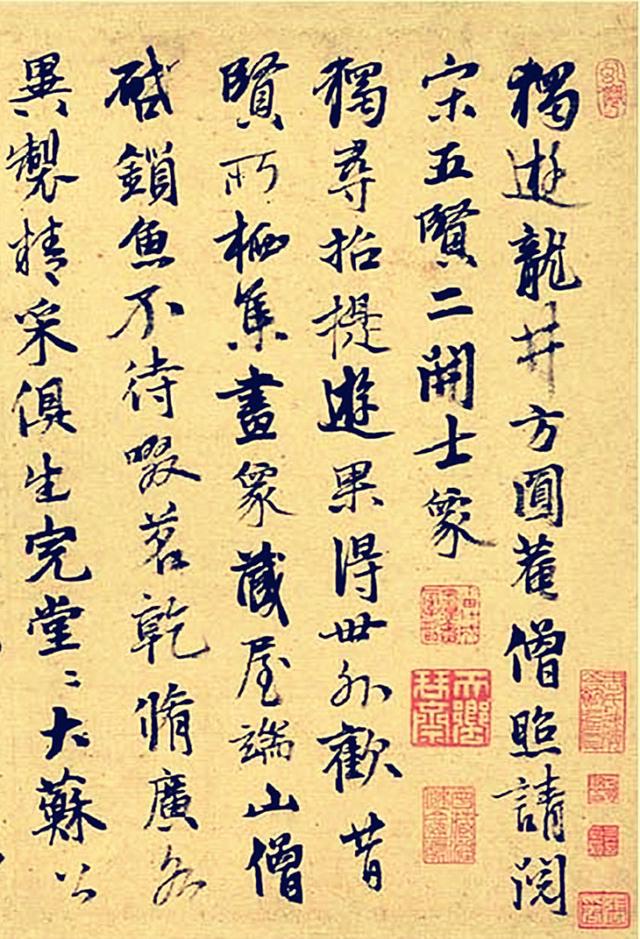 獨遊龍井方圓菴僧照請閱
宋五賢二開士象
獨尋招提遊果得世外歡昔
賢所栖集畫象藏屋端山僧
啓鎖魚不待啜茗乾脩廣各
異製精采俱生完堂〻大蘇公